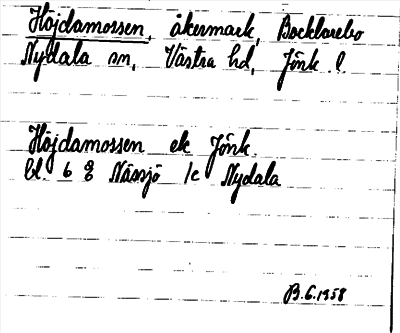 Höjdamossen, åkermark, Bocklarebo
Nydala sn, Västra hd, Jönk. l.
Höjdamossen ek Jönk.
bl. 6 8 Nässjö 1c Nydala
B.G.1958